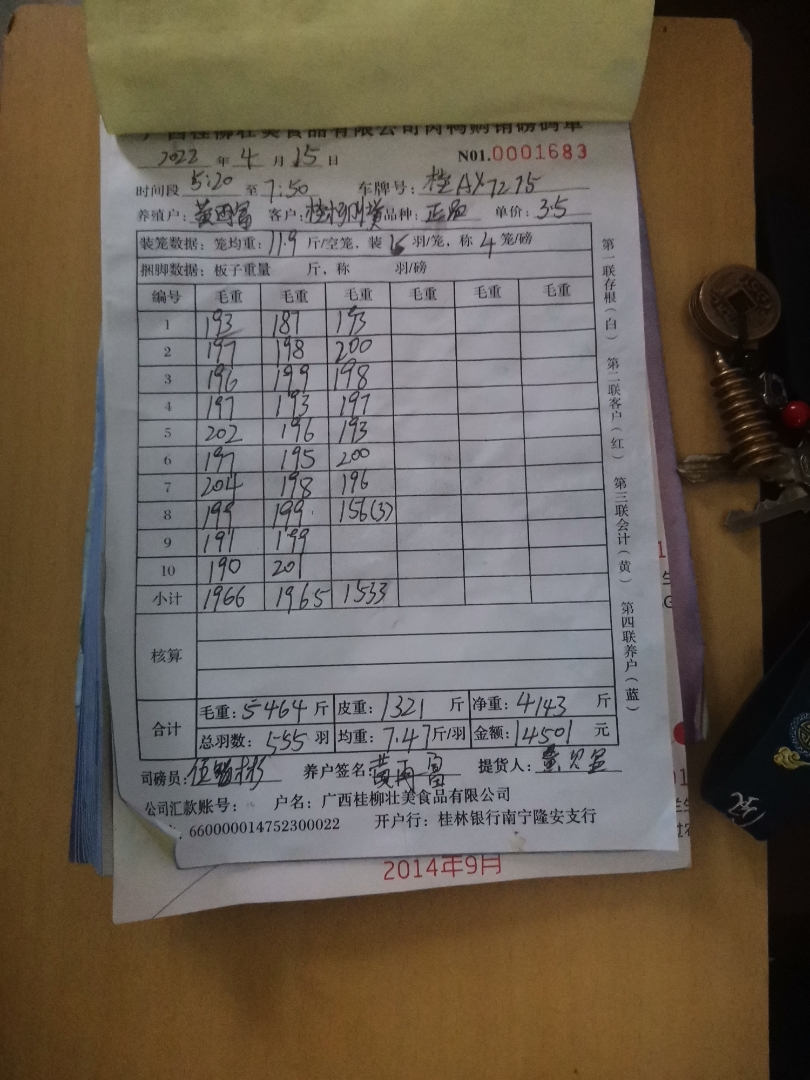 广西桂柳壮美食品有限公司肉鸭购销磅码单
2022 年 4 月 15 日 N01.0001683
时间段 5:20 至 7:50 车牌号: 桂AX7275
养殖户: 黄雨富 客户: 桂柳 品种: 正品 单价: 3.5
装笼数据: 笼均重: 11.9 斤/空笼, 装 羽/笼, 称 4 笼/磅
捆脚数据: 板子重量 斤, 称 羽/磅
编号 毛重 毛重 毛重 毛重 毛重 毛重
1 193 187 193
2 197 198 200
3 196 199 198
4 197 193 197
5 202 196 193
6 197 195 200
7 204 198 196
8 199 199 156(3)
9 191 199
10 190 201
小计 1966 1965 1533
核算
合计 毛重: 5464 斤 皮重: 1321 斤 净重: 4143 斤
总羽数: 555 羽 均重: 7.47 斤/羽 金额: 14501 元
司磅员: 养户签名: 黄雨富 提货人:
公司汇款账号: 户名: 广西桂柳壮美食品有限公司
660000014752300022 开户行: 桂林银行南宁隆安支行
第一联存根(白) 第二联客户(红) 第三联会计(黄) 第四联养户(蓝)
2014年9月